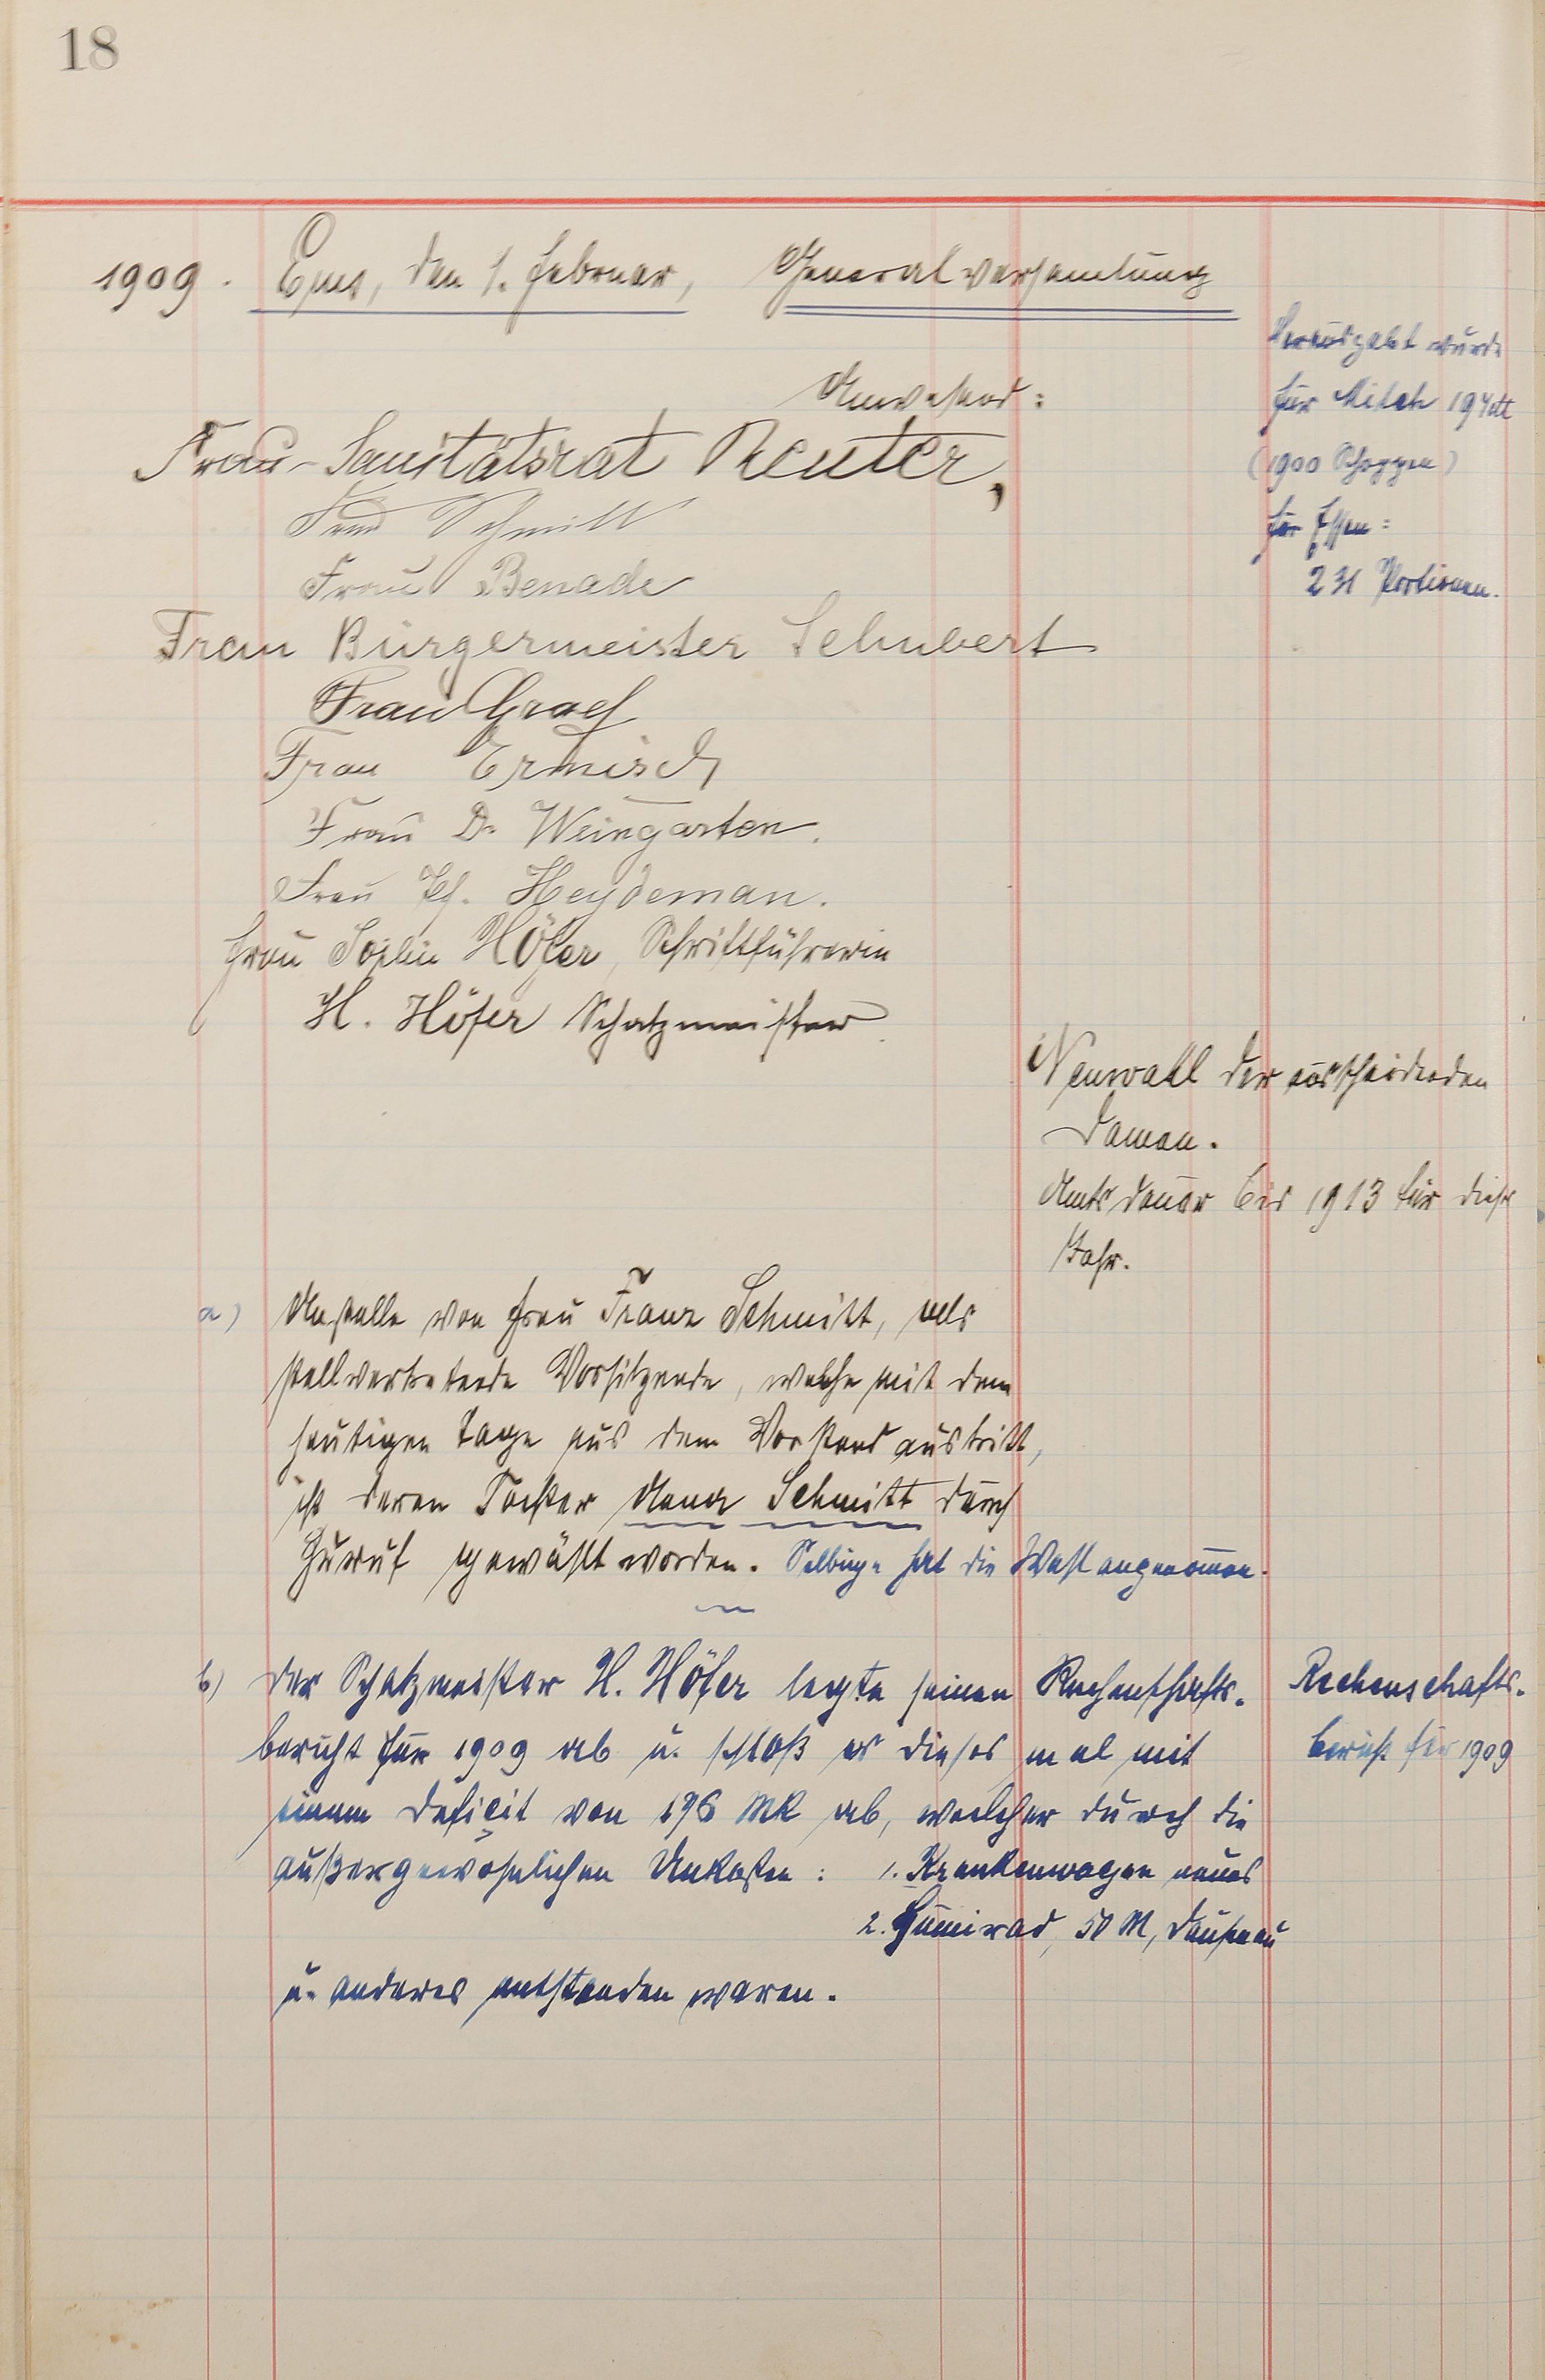 18
1909. Ems, den 1. Februar, Generalversamlung
Verausgabt wurde
für Milch 194 M
(1900 Schoppen)
für Essen:
231 Portionen.
Anwesend:
Frau Sanitätsrat Reuter,
Frau Schmitt
Frau Benade
Frau Bürgermeister Schubert
Frau Graef
Frau Ermisch
Frau Dr Weingarten.
Frau Heydeman.
Frau Sophie Höfer, Schriftführerin
H. Höfer Schatzmeister.
Neuwahl der ausscheidenden
Damen.
Amtsdauer bis 1913 für diese
Jahr.
a) Anstelle von Frau Franz Schmitt, als
stellvertretende Vorsitzende, welche mit dem
heutigen Tage aus dem Vorstand austritt,
ist deren Tochter Anna Schmitt durch
Zuruf gewählt worden. Selbige hat die Wahl angenom̅en.
b) Der Schatzmeister H. Höfer legte seinen Rechenschafts-
bericht für 1909 ab u. schloß er dieses mal mit
einem Deficit von 196 Mk ab, welcher durch die
außergewöhnlichen Unkosten: 1. Krankenwagen neues
2. Gum̅irad, 50 M, Dausenau
u. anderes entstanden waren.
Rechenschafts-
bericht für 1909